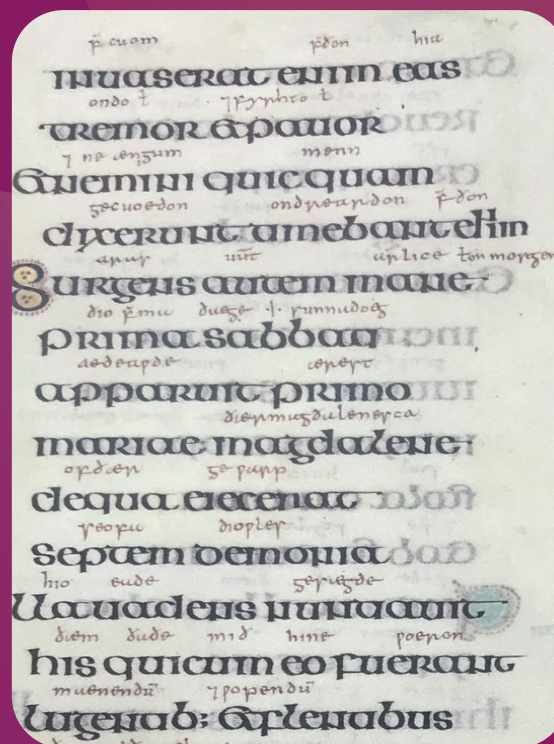 f' cuom f'ðon hia
inuaserat enim eas
ondo ł ⁊ fyrhto ł
tremor & pauor
⁊ ne ængum menn
& nemini quicquam
gecuoedon ondreardon f'ðon
dixerunt timebant enim
aras uut' arlice ł on morgen
Surgens autem mane
ðio f'mu dæge .i. sunnadæg
prima sabbati
ædeawde ærest
apparuit primo
mariae magdalene
of ðær gewarp
de qua eiecerat
seofu diowles
septem demonia
hio eude gesægde
Illa uadens nuntiauit
ðæm ðaðe mið hine woeron
his qui cum eo fuerant
mænendū ⁊ woependū
lugentib; & flentibus